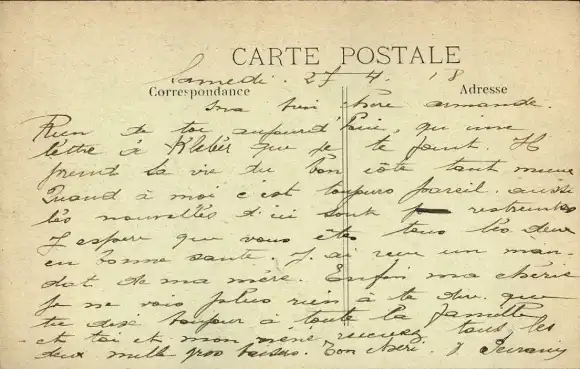 CARTE POSTALE
Samedi. 27 4. 18
Correspondance
Adresse
ma bien chère armande.
Rien de toi aujourd'hui, qu'une
lettre à Kléber que je te joint. Il
prend la vie du bon côté tant mieux
Quand à moi c'est toujours pareil. aussi
les nouvelles d'ici sont restreintes
J'espère que vous êtes tous les deux
en bonne santé. J'ai reçu un man-
dat de ma mère. Enfin ma chérie
Je ne vois plus rien à te dire. que
tu dise bonjour à toute la famille
et toi et mon recevez tous les
deux mille gros baisers. Ton chéri.